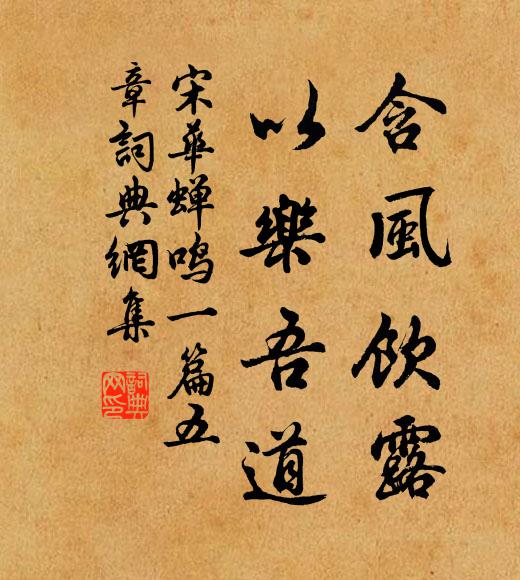 含風飲露
以樂吾道
宋華蟬鳴一篇五
章詞典網集
詞典
网印